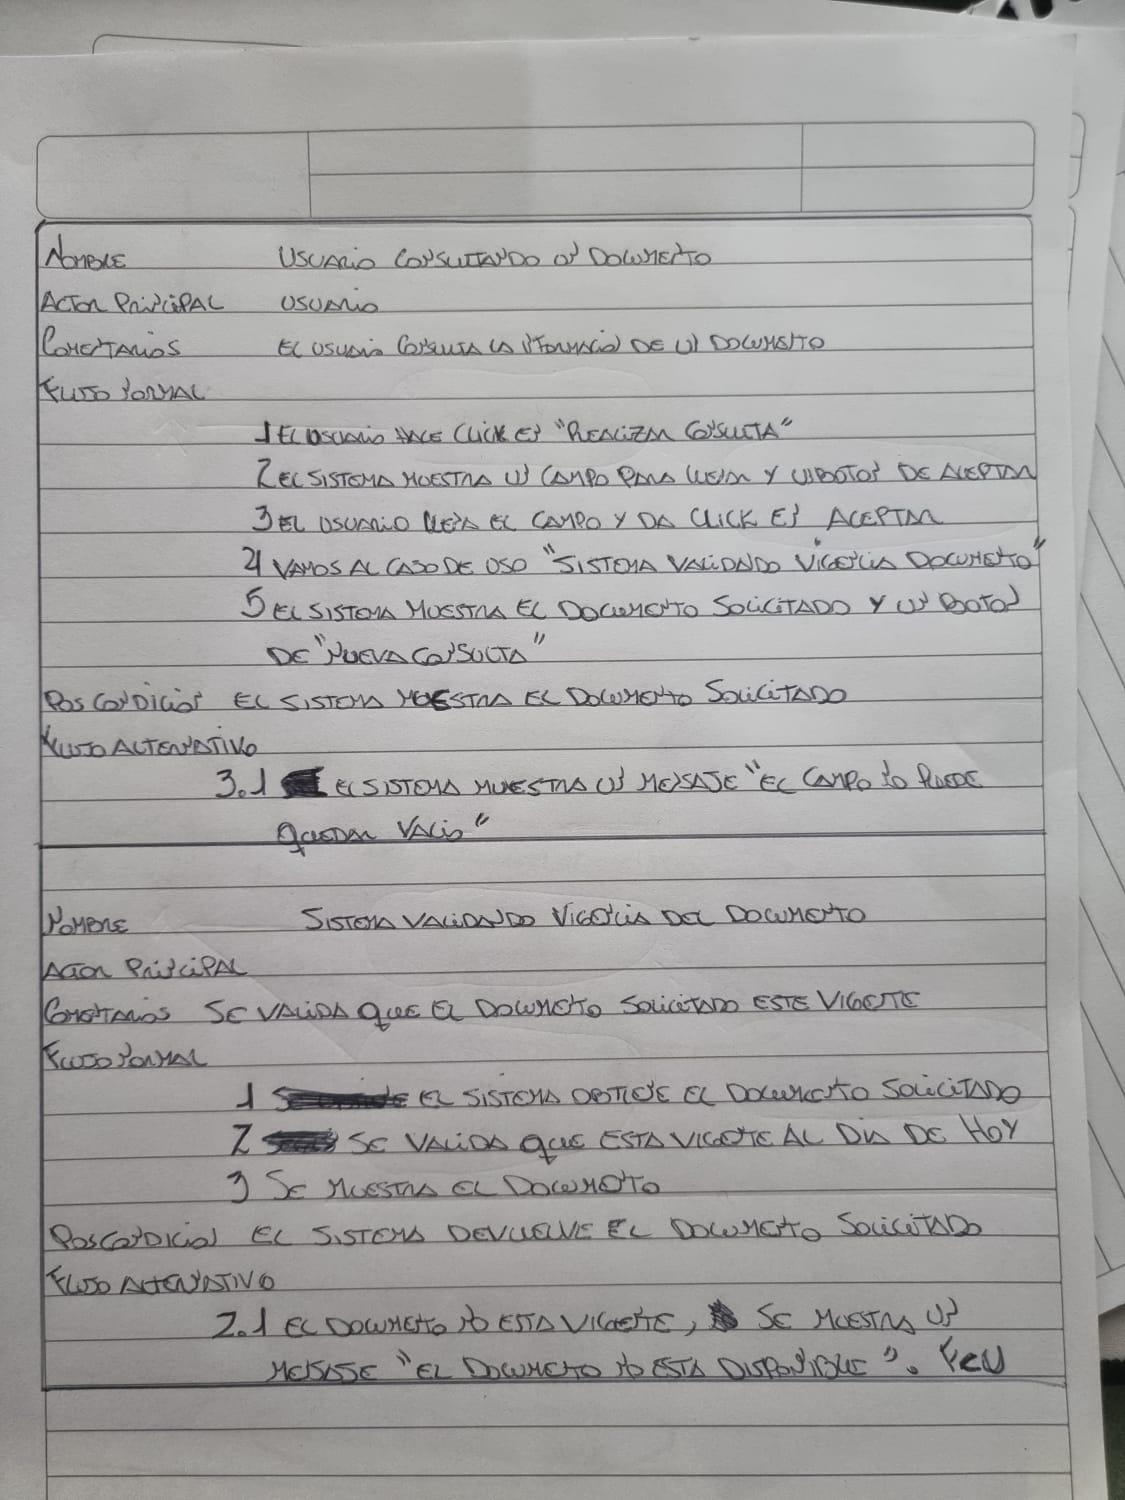 NOMBRE USUARIO CONSULTANDO UN DOCUMENTO
ACTOR PRINCIPAL USUARIO
COMENTARIOS EL USUARIO CONSULTA LA INFORMACIÓN DE UN DOCUMENTO
FLUJO NORMAL
1 EL USUARIO HACE CLICK EN "REALIZAR CONSULTA"
2 EL SISTEMA MUESTRA UN CAMPO PARA LLENAR Y UN BOTON DE ACEPTAR
3 EL USUARIO LLENA EL CAMPO Y DA CLICK EN ACEPTAR
4 VAMOS AL CASO DE USO "SISTEMA VALIDANDO VIGENCIA DOCUMENTO"
5 EL SISTEMA MUESTRA EL DOCUMENTO SOLICITADO Y UN BOTON
DE "NUEVA CONSULTA"
POSCONDICION EL SISTEMA MUESTRA EL DOCUMENTO SOLICITADO
FLUJO ALTERNATIVO
3.1 EL SISTEMA MUESTRA UN MENSAJE "EL CAMPO NO PUEDE
QUEDAR VACIO"
NOMBRE SISTEMA VALIDANDO VIGENCIA DEL DOCUMENTO
ACTOR PRINCIPAL
COMENTARIOS SE VALIDA QUE EL DOCUMENTO SOLICITADO ESTE VIGENTE
FLUJO NORMAL
1 EL SISTEMA OBTIENE EL DOCUMENTO SOLICITADO
2 SE VALIDA QUE ESTA VIGENTE AL DIA DE HOY
3 SE MUESTRA EL DOCUMENTO
POSCONDICION EL SISTEMA DEVUELVE EL DOCUMENTO SOLICITADO
FLUJO ALTERNATIVO
2.1 EL DOCUMENTO NO ESTA VIGENTE, SE MUESTRA UN
MENSAJE "EL DOCUMENTO NO ESTA DISPONIBLE".